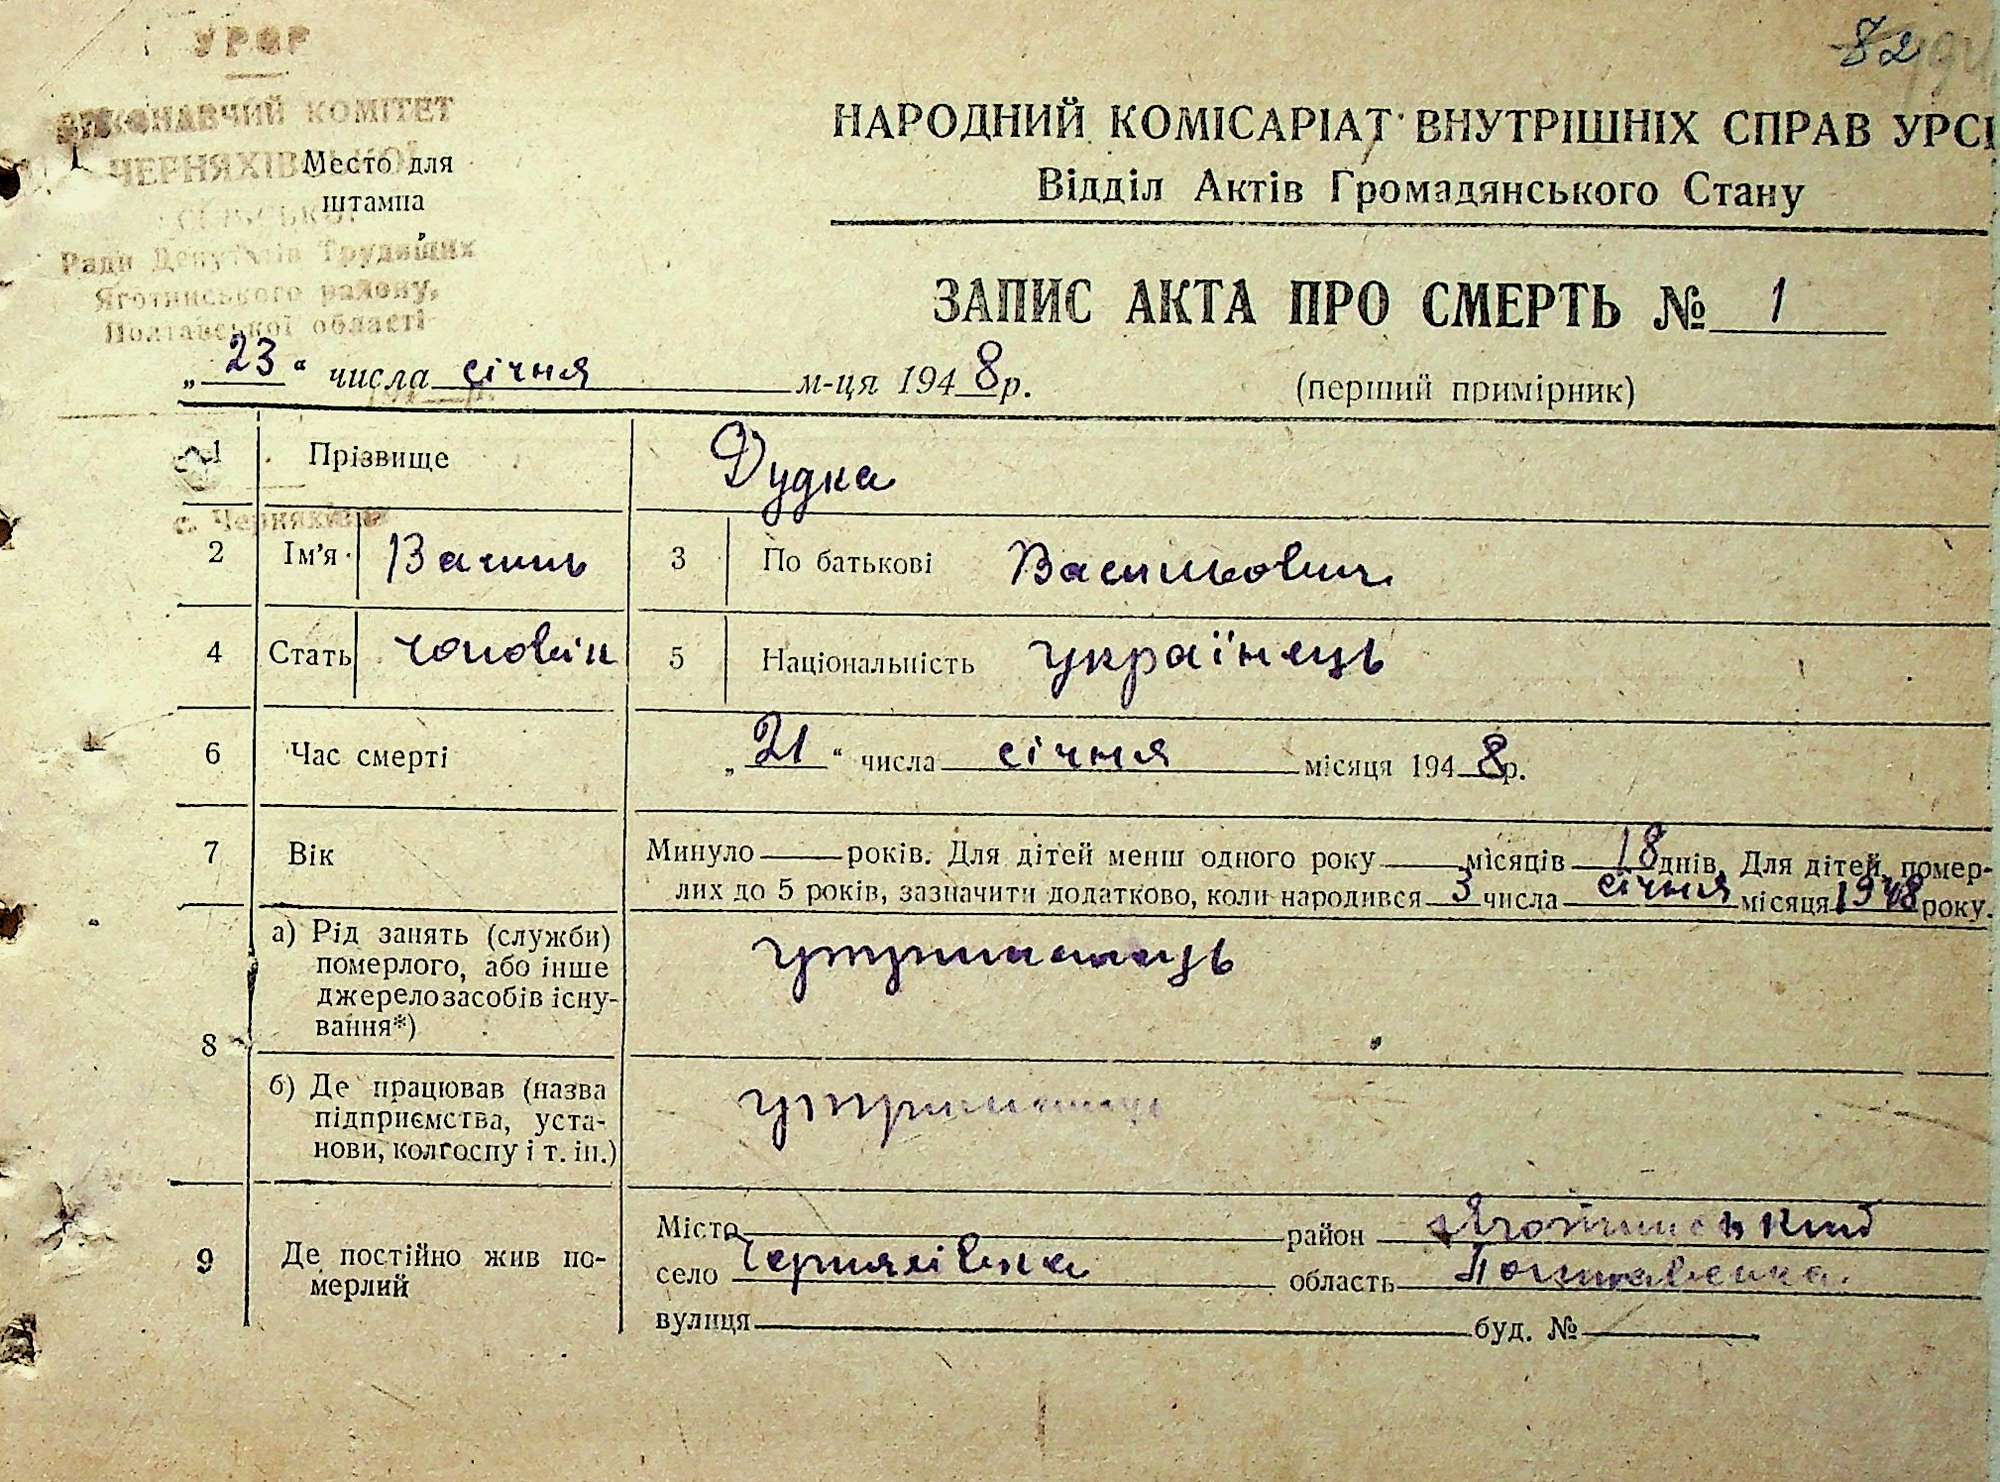 УРСР
82
ВИКОНАВЧИЙ КОМІТЕТ
ЧЕРНЯХІВСЬКОЇ
СІЛЬСЬКОЇ
Ради Депутатів Трудящих
Яготинського району,
Полтавської області
Место для
штампа
НАРОДНИЙ КОМІСАРІАТ ВНУТРІШНІХ СПРАВ УРСІ
Відділ Актів Громадянського Стану
ЗАПИС АКТА ПРО СМЕРТЬ № 1
„23“ числа січня м-ця 1948 р.
(перший примірник)
1 Прізвище Дудка
с. Черняхівка
2 Ім'я Василь 3 По батькові Васильович
4 Стать чоловік 5 Національність українець
6 Час смерті „21“ числа січня місяця 1948 р.
7 Вік Минуло років. Для дітей менш одного року місяців 18 днів. Для дітей, помер-
лих до 5 років, зазначити додатково, коли народився 3 числа січня місяця 1948 року.
8 а) Рід занять (служби)
померлого, або інше
джерело засобів існу-
вання*)
утриманець
б) Де працював (назва
підприємства, уста-
нови, колгоспу і т. ін.)
утриманець
9 Де постійно жив по-
мерлий
Місто район Яготинський
село Черняхівка область Полтавська.
вулиця буд. №